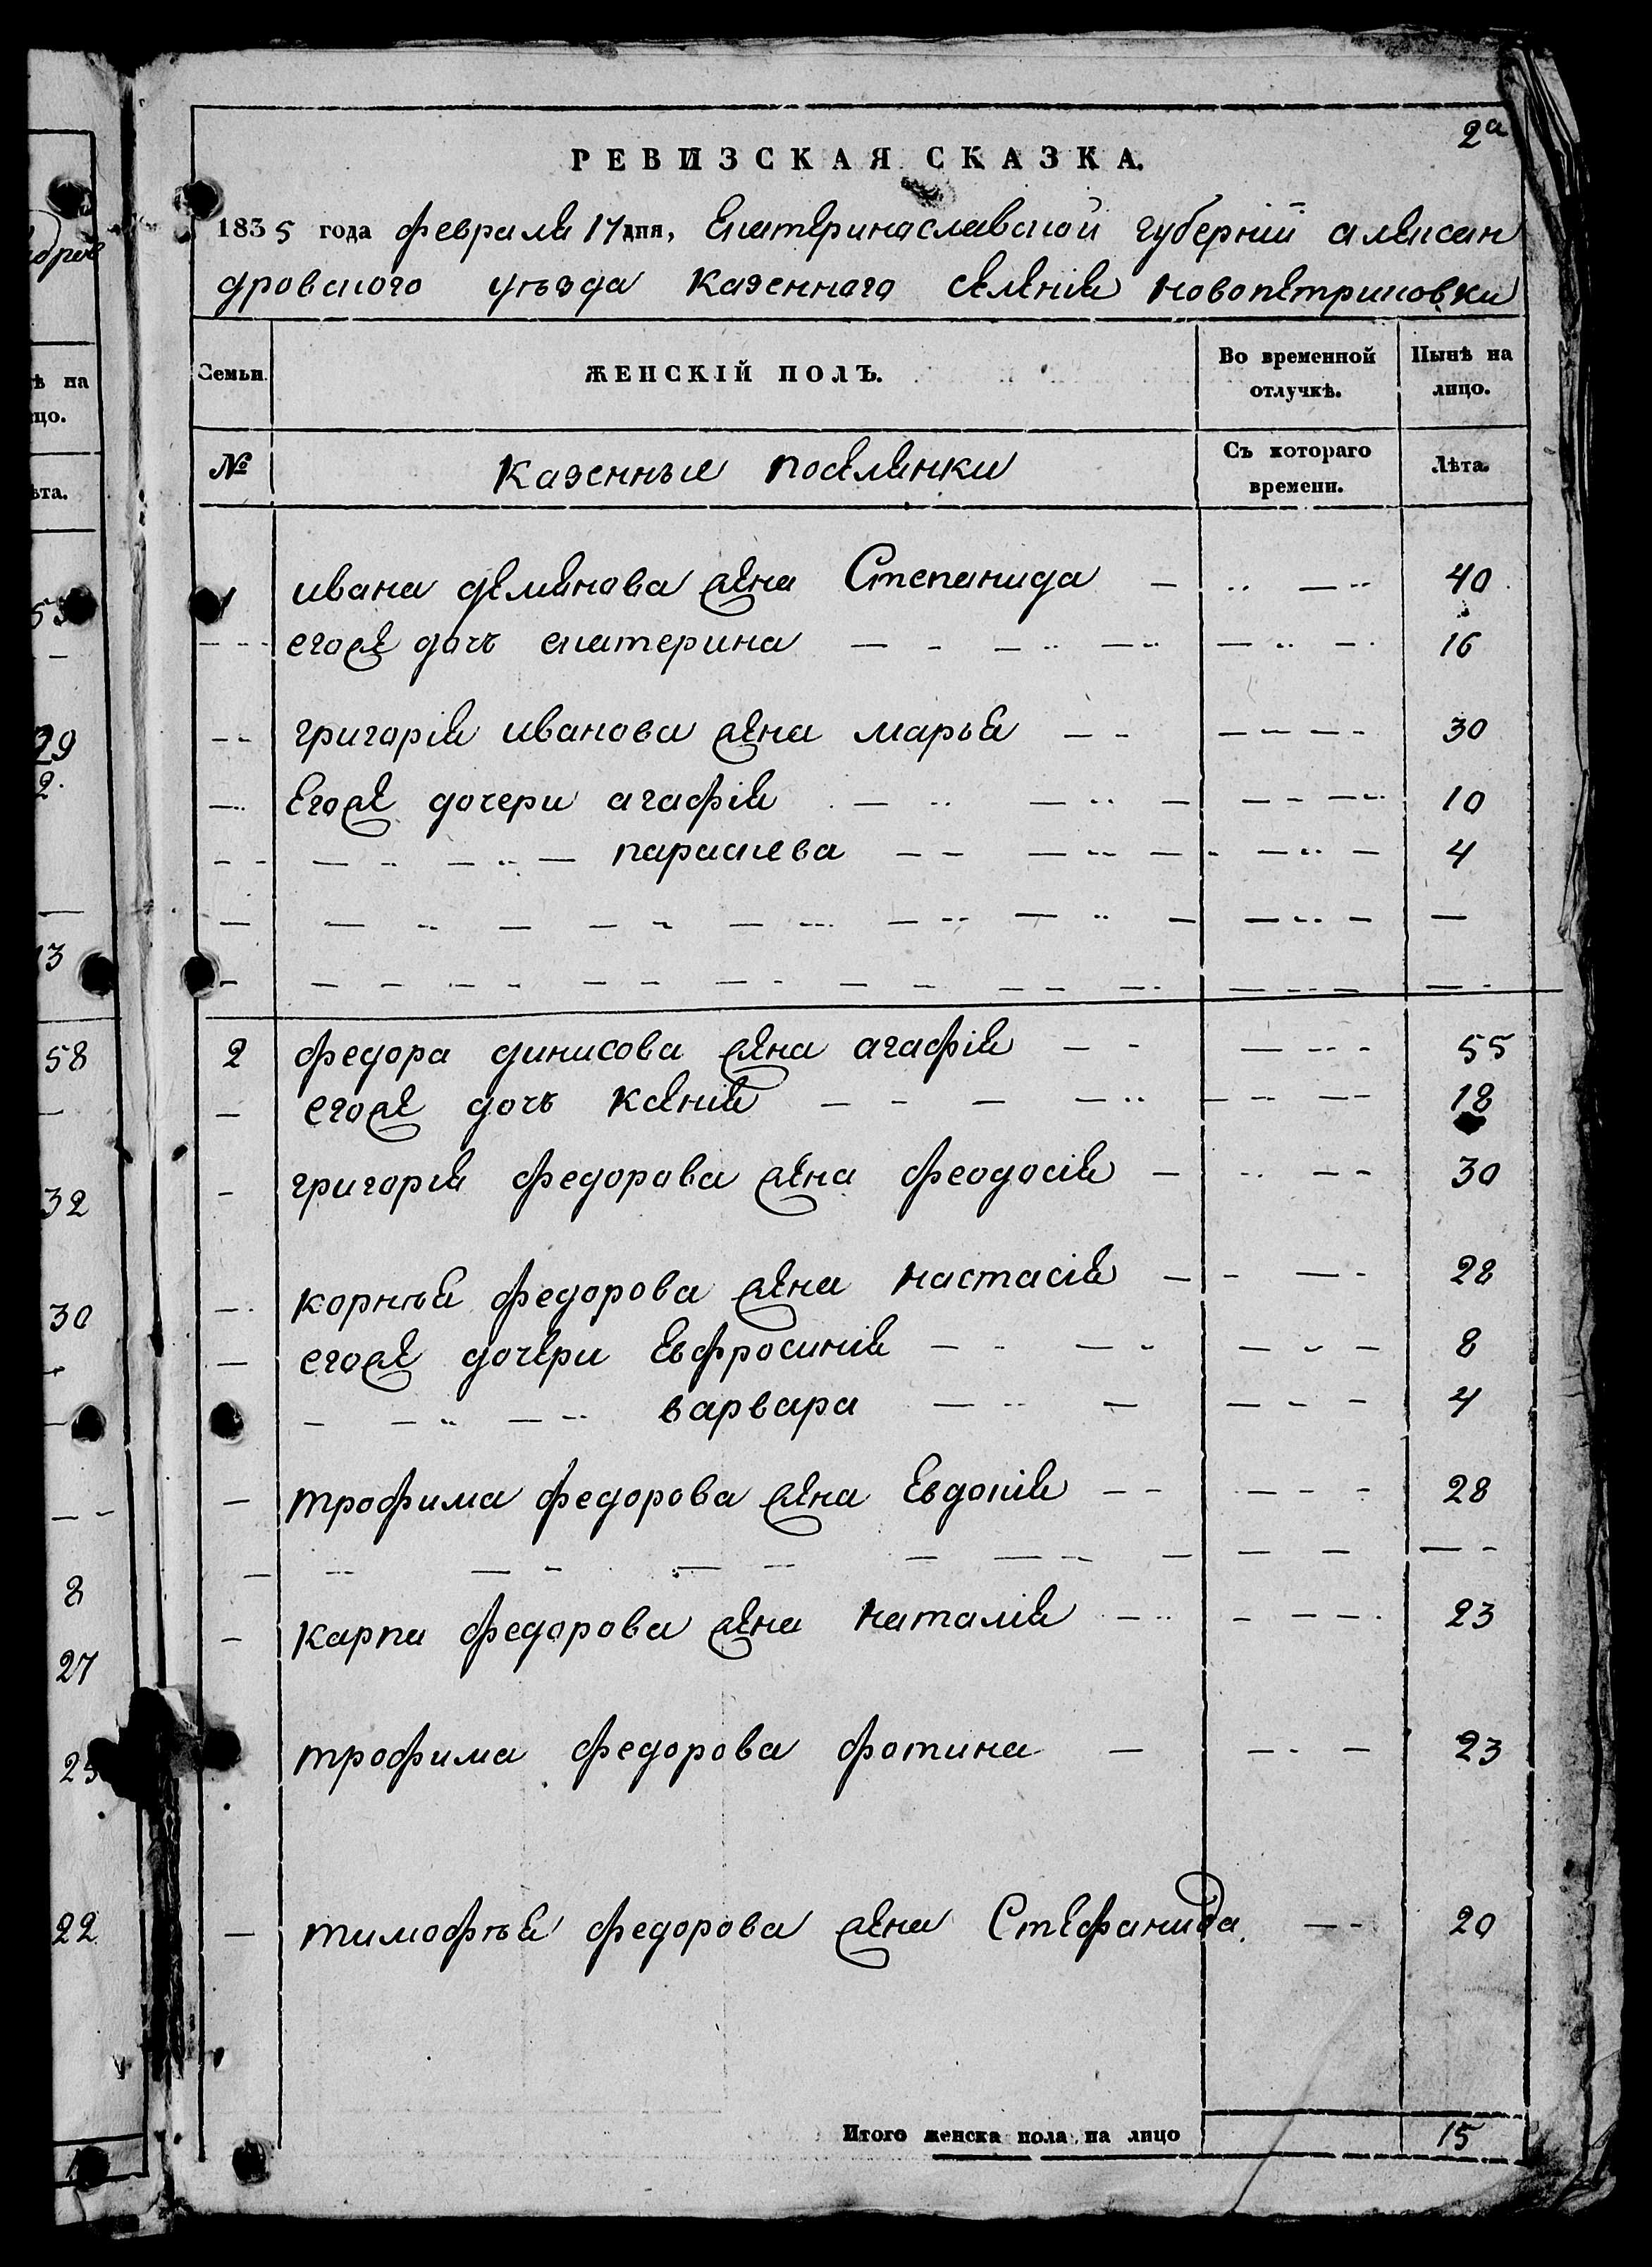 2а
РЕВИЗСКАЯ СКАЗКА.
1835 года февраля 17 дня, Екатеринославской губернiй алексан
дровского уѣзда казенного селенiя новопетриковки
Семьи. ЖЕНСКІЙ ПОЛЪ. Во временной отлучкѣ. Нынѣ на лицо.
№ казенные поселянки Съ котораго времени. Лѣта.
1 ивана деменова жена Степанида 40
егоже дочь екатерина 16
григорiя иванова жена марья 30
Егоже дочери агафiя 10
параскева 4
2 федора динисова жена агафiя 55
егоже дочь ксенiя 18
григорiя федорова жена феодосiя 30
корнѣя федорова жена настасiя 28
егоже дочери Евфросинiя 8
варвара 4
трофима федорова жена Евдокiя 28
карпа федорова жена наталiя 23
трофима федорова фотина 23
тимофѣя федорова жена Стефанида. 20
Итого женска пола на лицо 15
ѣ на
цо.
ѣта.
29
2.
13
58
32
30
8
27
22